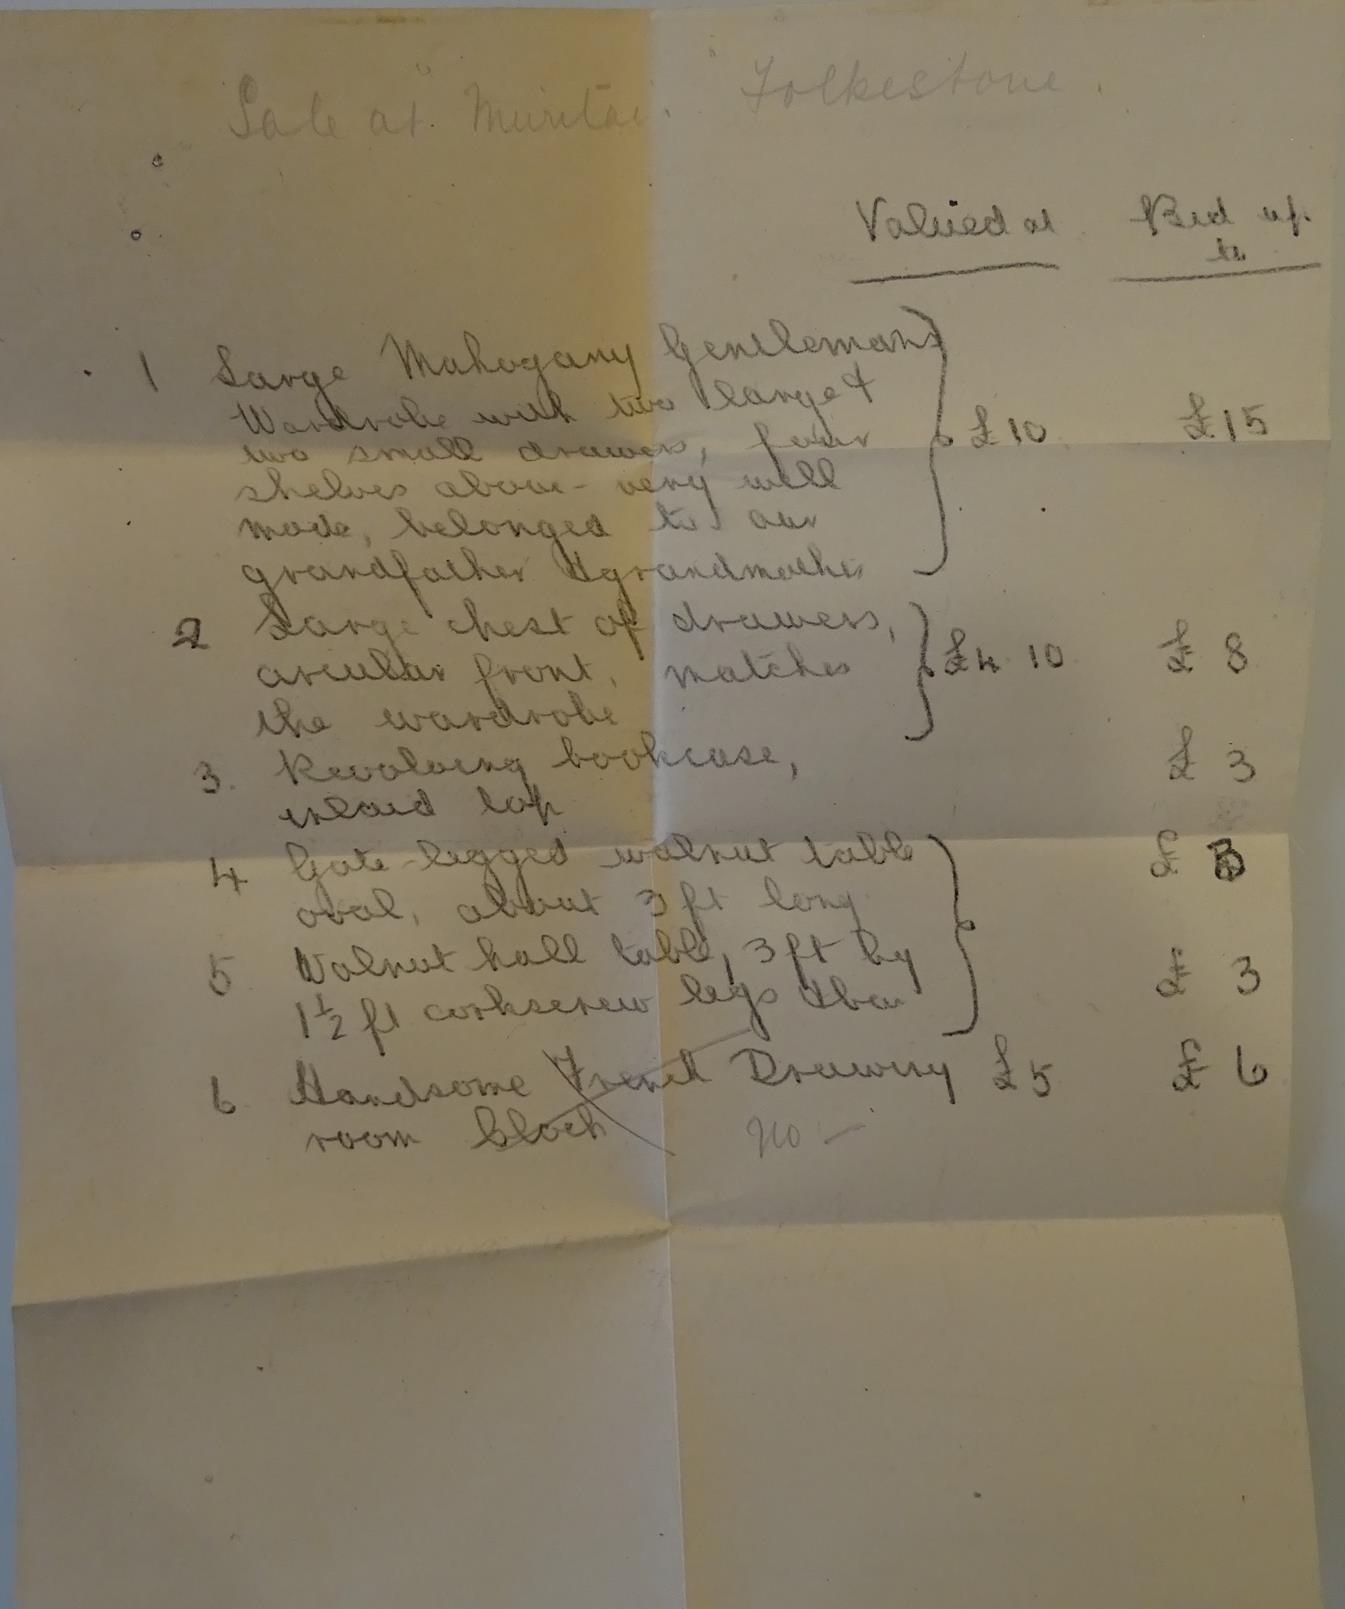 Sale at "Muritai" Folkestone.
Valued at Bid up
to
1 Large Mahogany Gentlemans
Wardrobe with two large &
two small drawers, four £10 £15
shelves above - very well
made, belonged to our
grandfather & grandmother
2 Large chest of drawers,
circular front, matches £4 10 £ 8
the wardrobe
3. Revolving bookcase, £ 3
inlaid top
4 Gate-legged walnut table £
oval, about 3 ft long
5 Walnut hall table, 3 ft by £ 3
1½ ft corkscrew legs & bar
6 Handsome French Drawing £5 £ 6
room Clock no -